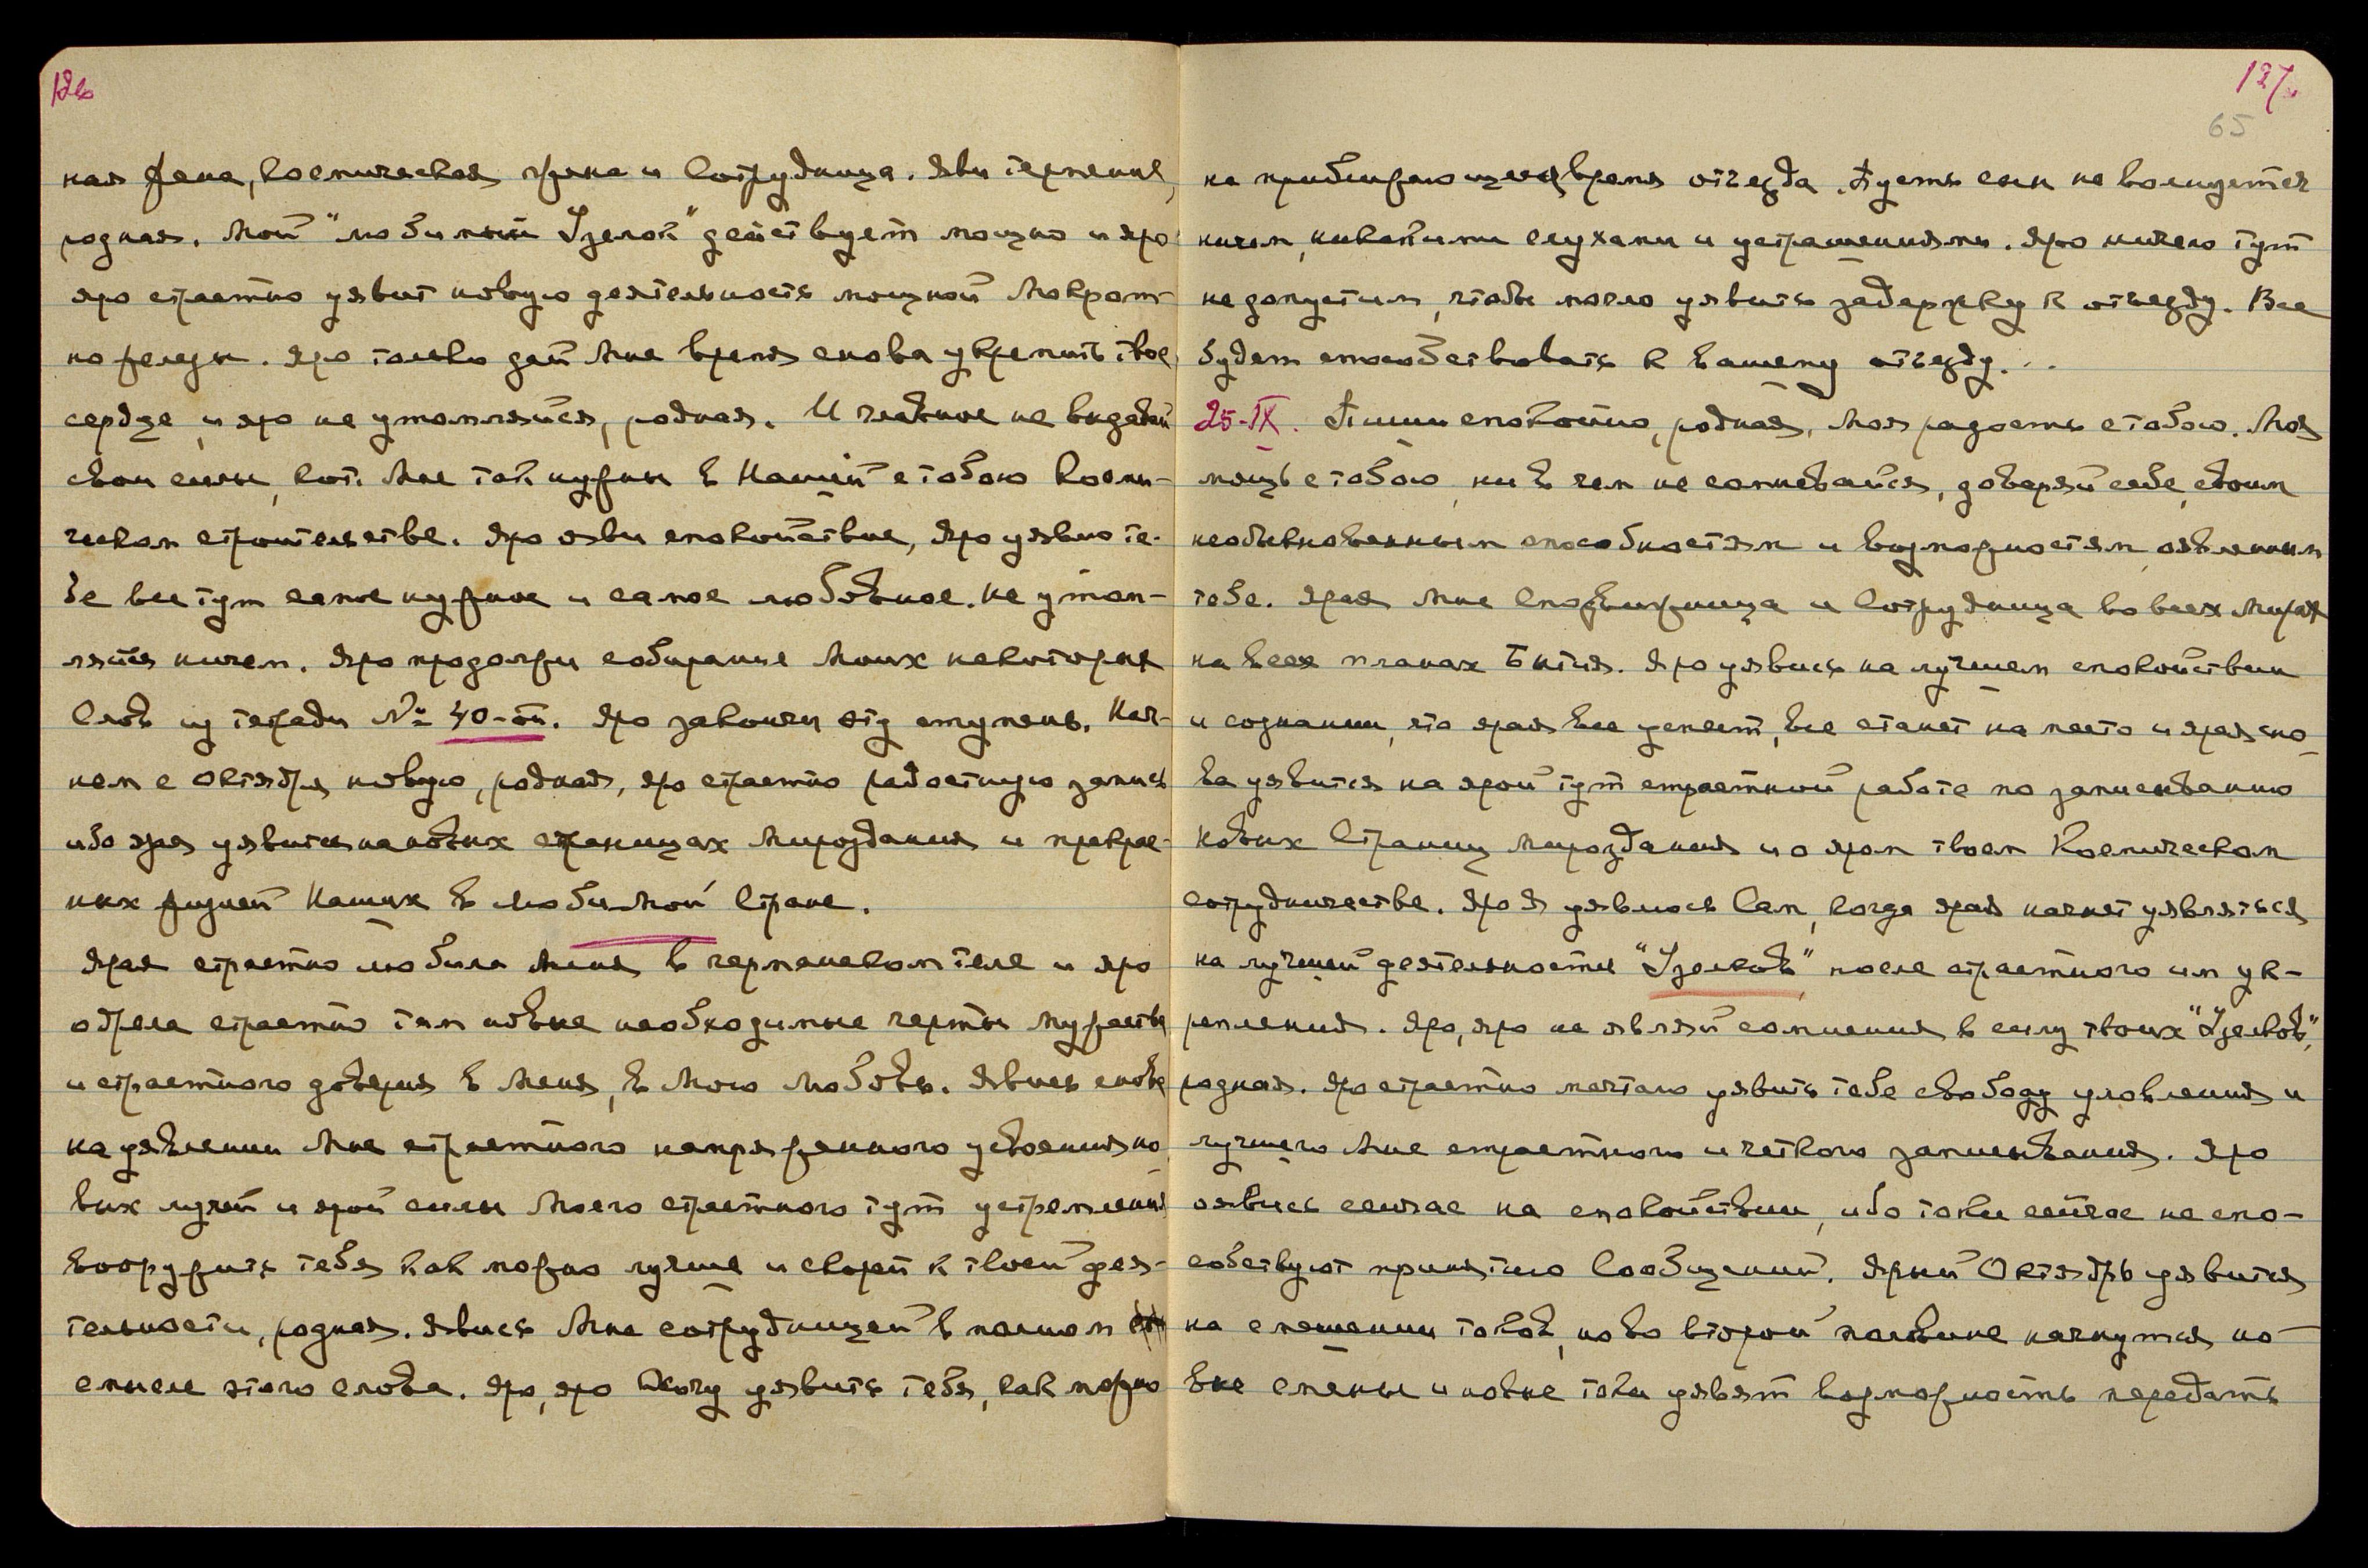 126
ная жена, космическая жена и Сотрудница. Яви терпение,
родная. Мой "любимый Узелок" действует мощно и яро
яро страстно уявит новую деятельность мощной Мокрот-
ной железы. Яро только дай Мне время снова укрепить твое
сердце, и яро не утомляйся, родная. И главное не выдавай
свои силы, кот. Мне так нужны в Нашем с тобою Косми-
ческом строительстве. Яро яви спокойствие, Яро уявлю те-
бе все тут самое нужное и самое любовное. Не утом-
ляйся ничем. Яро продолжи собирание Моих некоторых
Слов из тетради № 40-ой. Яро закончи эту ступень. Нач-
нем с Октября новую, родная, яро страстно радостную запись
ибо яра уявится на новых страницах Мироздания и прекрас-
ных жизней Наших в Любимой Стране.
Ярая страстно любила Меня в германском теле и яро
обрела страстно там новые необходимые черты мужества
и страстного доверия в Меня, в Мою Любовь. Явись снова
на уявлении Мне страстного напряженного усвоения но-
вых лучей и ярой силы Моего страстного тут устремления
вооружить тебя как можно лучше и скорей к твоей дея-
тельности, родная. Явись Мне сотрудницей в полном
смысле этого слова. Яро, яро Хочу уявить тебя, как можно
127
65
на приближающееся время отъезда. Пусть сын не волнуется
ничем, никакими слухами и устрашениями. Яро ничего тут
не допустим, чтобы могло уявить задержку к отъезду. Все
будет способствовать к вашему отъезду...
25-IX. Пиши спокойно, родная, Моя радость с тобою. Моя
мощь с тобою, ни в чем не сомневайся, доверяй себе, своим
необыкновенным способностям и возможностям, оявленным
тебе. Ярая Мне Сподвижница и Сотрудница во всех Мирах
на всех планах Бытия. Яро уявись на лучшем спокойствии
и сознании, что ярая все успеет, все станет на место и ярая сно-
ва уявится на ярой тут страстной работе по записыванию
Новых Страниц Мироздания и о яром твоем Космическом
сотрудничестве. Яро Я уявлюсь Сам, когда ярая начнет уявляться
на лучшей деятельности "Узелков" после страстного им ук-
репления. Яро, яро не являй сомнения в силу твоих "Узелков",
родная. Яро страстно мечтаю уявить тебе свободу уловления и
лучшего Мне страстного и четкого записывания. Яро
оявись сейчас на спокойствии, ибо токи сейчас не спо-
собствуют принятию Сообщений. Ярый Октябрь уявится
на смешении токов, но во второй половине начнутся но-
вые смены и новые токи уявят возможность передать